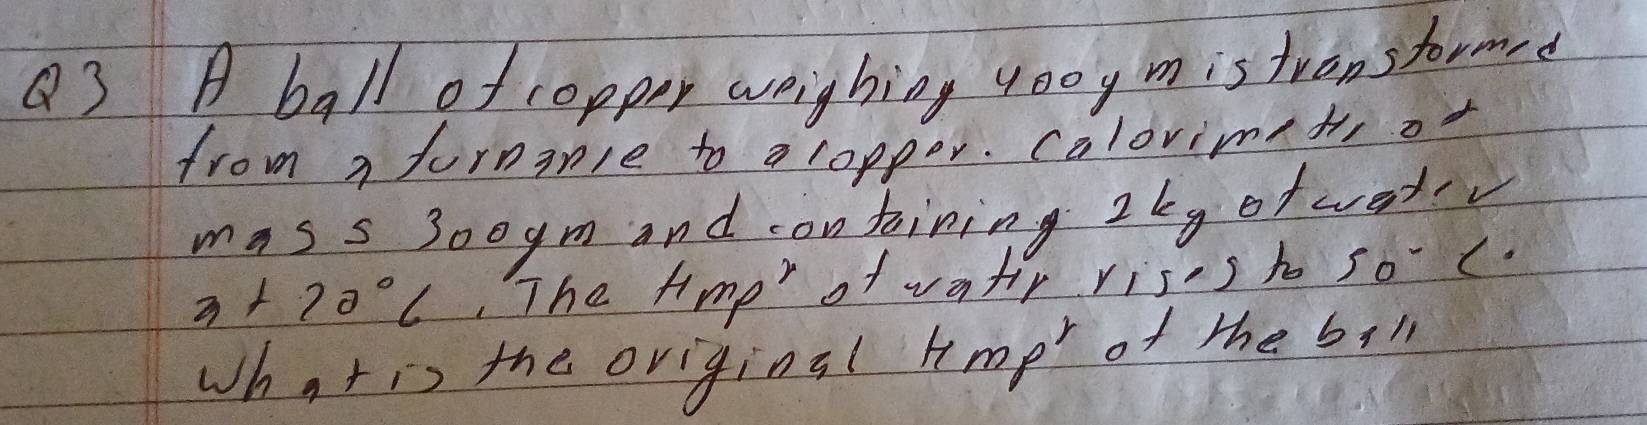 Q3 A ball of copper weighing 400gm is transformed
from a furnance to a copper. Calorimetre of
mass 300gm and containing 2kg of water
at 20°C. The tempr of water rises to 50°C.
What is the original tempr of the ball